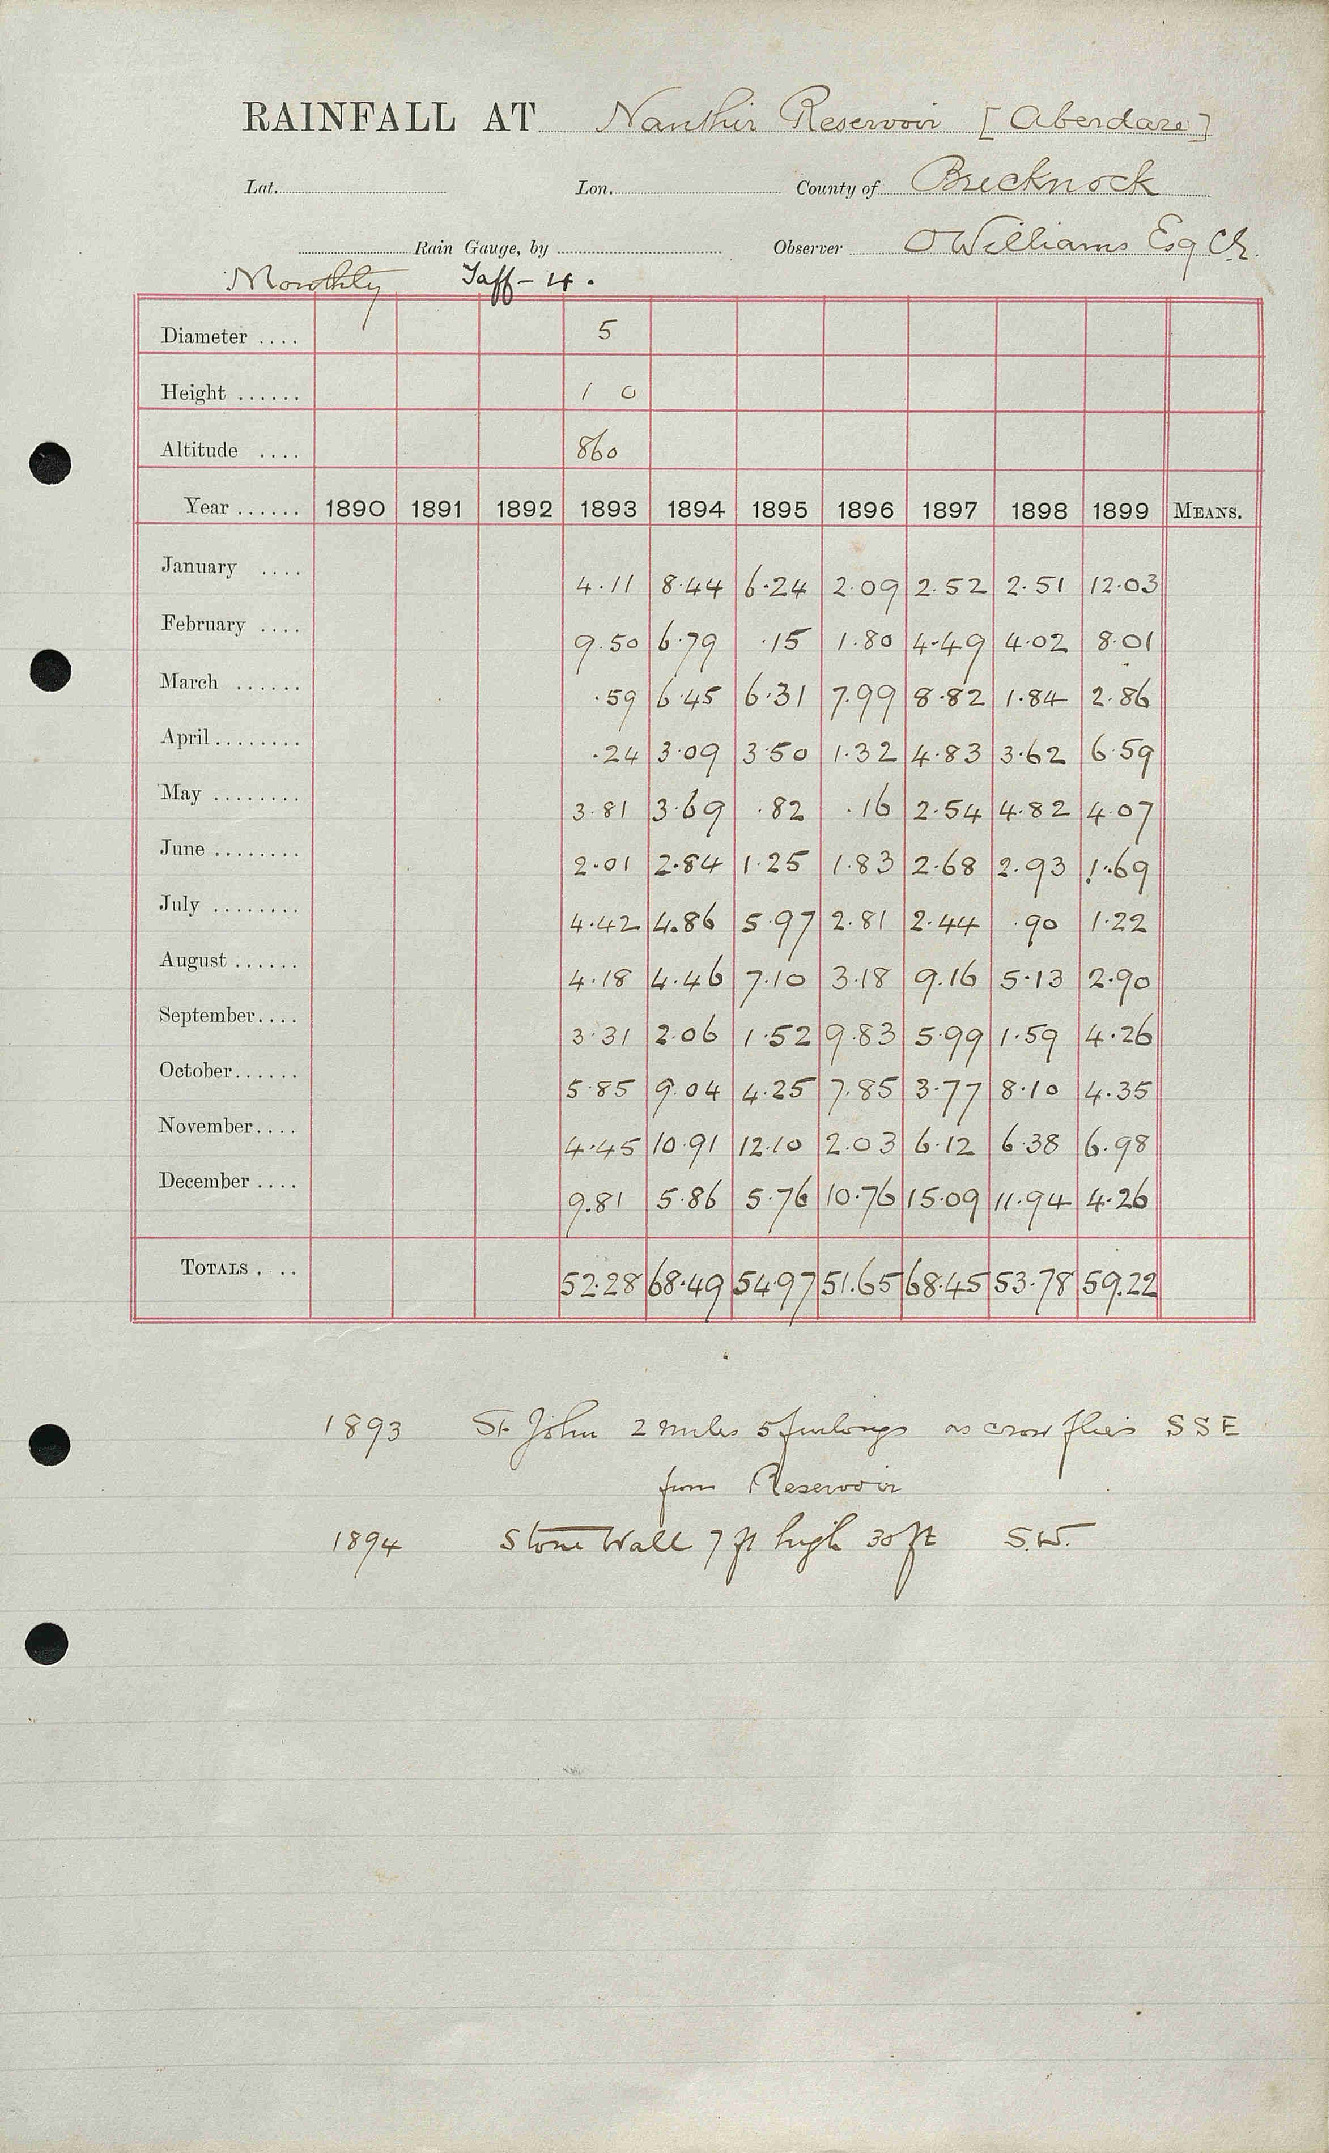 RAINFALL AT Nanthir Reservoir [Aberdare]
Lat. Lon. County of Brecknock
Rain Gauge, by Observer O Williams Esq CE
Monthly Taff - 4.
Diameter .... 5
Height ...... 1 0
Altitude .... 860
Year ...... 1890 1891 1892 1893 1894 1895 1896 1897 1898 1899 MEANS.
January .... 4.11 8.44 6.24 2.09 2.52 2.51 12.03
February .... 9.50 6.79 .15 1.80 4.49 4.02 8.01
March ...... .59 6.45 6.31 7.99 8.82 1.84 2.86
April........ .24 3.09 3.50 1.32 4.83 3.62 6.59
May ........ 3.81 3.69 .82 .16 2.54 4.82 4.07
June ........ 2.01 2.84 1.25 1.83 2.68 2.93 1.69
July ........ 4.42 4.86 5.97 2.81 2.44 .90 1.22
August ...... 4.18 4.46 7.10 3.18 9.16 5.13 2.90
September.... 3.31 2.06 1.52 9.83 5.99 1.59 4.26
October...... 5.85 9.04 4.25 7.85 3.77 8.10 4.35
November.... 4.45 10.91 12.10 2.03 6.12 6.38 6.98
December .... 9.81 5.86 5.76 10.76 15.09 11.94 4.26
TOTALS . .. 52.28 68.49 54.97 51.65 68.45 53.78 59.22
1893 St John 2 miles 5 furlongs as crow flies SSE
from Reservoir
1894 Stone Wall 7 ft high 30 ft S.W.